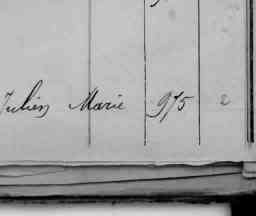 Julien Marie 975 2